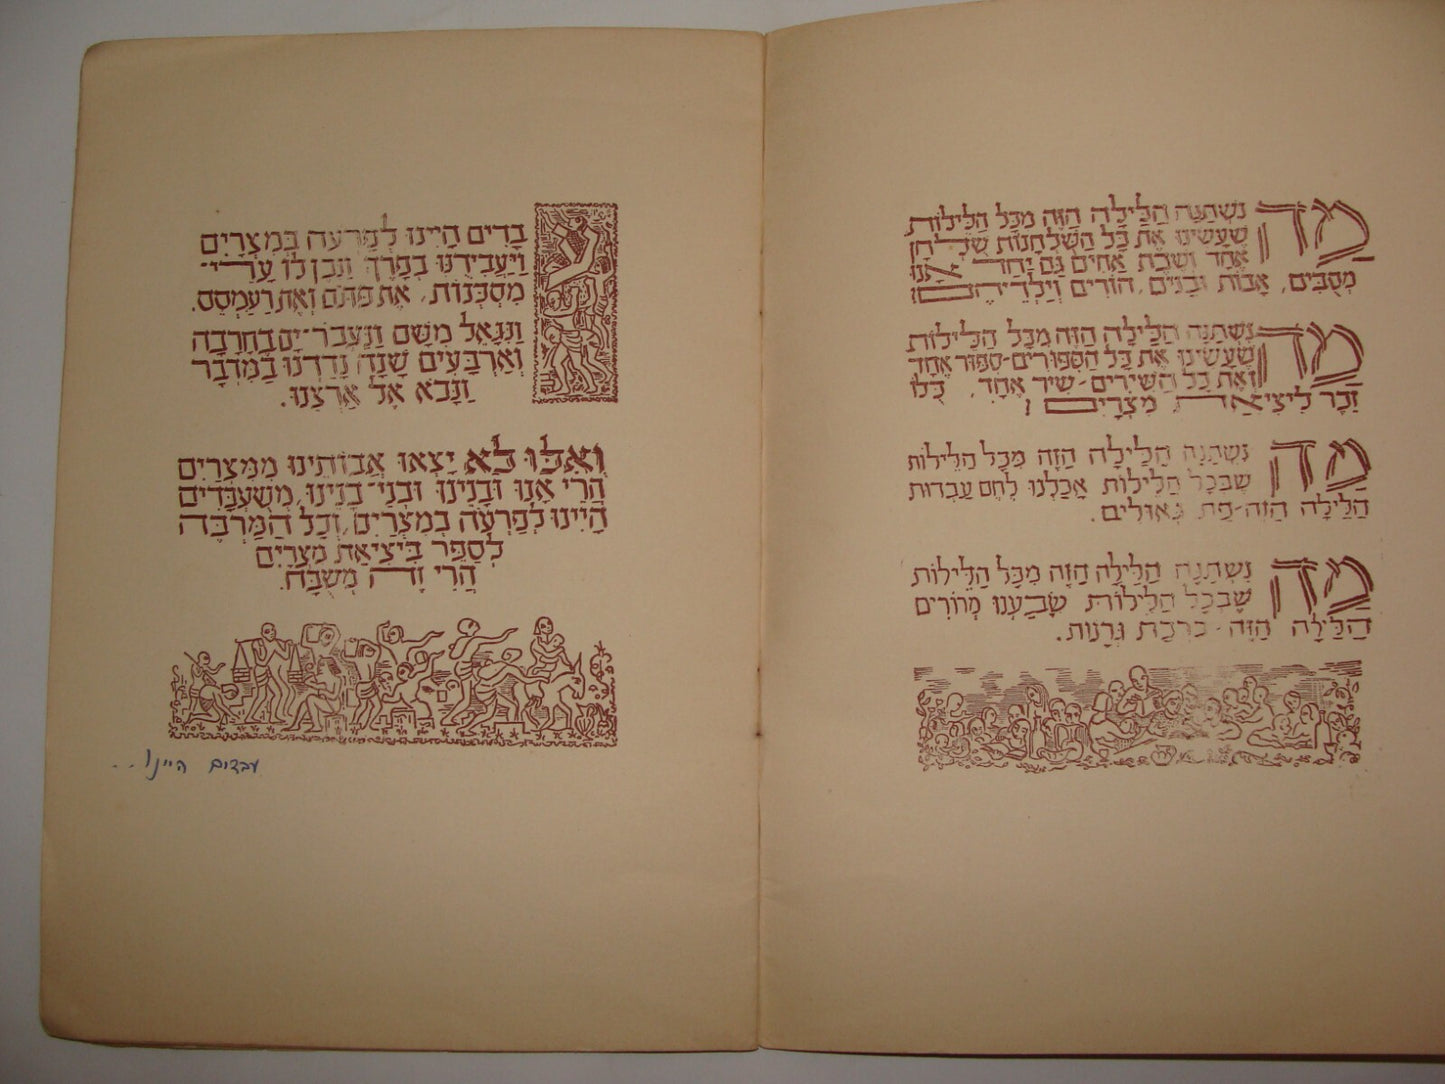 מַה נִשְׁתַּנָּה הַלַּיְלָה הַזֶּה מִכָּל הַלֵּילוֹת
שֶׁעָשִׂינוּ אֶת כָּל הַשֻּׁלְחָנוֹת שֻׁלְחָן
אֶחָד וְשֶׁבֶת אַחִים גַּם יָחַד אָנוּ
מְסֻבִּים, אָבוֹת וּבָנִים, הוֹרִים וְיַלְדֵיהֶם!
מַה נִשְׁתַּנָּה הַלַּיְלָה הַזֶּה מִכָּל הַלֵּילוֹת
שֶׁעָשִׂינוּ אֶת כָּל הַסִּפּוּרִים-סִפּוּר אֶחָד
וְאֶת כָּל הַשִּׁירִים-שִׁיר אֶחָד, כֻּלּוֹ
זֵכֶר לִיצִיאַת מִצְרָיִם!
מַה נִשְׁתַּנָּה הַלַּיְלָה הַזֶּה מִכָּל הַלֵּילוֹת
שֶׁבְּכָל הַלֵּילוֹת אָכַלְנוּ לֶחֶם עַבְדוּת
הַלַּיְלָה הַזֶּה-פַּת גְּאוּלִים.
מַה נִשְׁתַּנָּה הַלַּיְלָה הַזֶּה מִכָּל הַלֵּילוֹת
שֶׁבְּכָל הַלֵּילוֹת שָׂבַעְנוּ מְרוֹרִים
הַלַּיְלָה הַזֶּה-בִּרְכַּת גְּרָנוֹת.
עֲבָדִים הָיִינוּ לְפַרְעֹה בְּמִצְרַיִם
וַיַּעֲבִידֻנוּ בְּפֶרֶךְ וַנִּבֶן לוֹ עָרֵי-
מִסְכְּנוֹת, אֶת פִּתֹם וְאֶת רַעַמְסֵס.
וַנִּגָּאֵל מִשָּׁם וַנַּעֲבֹר-יָם בֶּחָרָבָה
וְאַרְבָּעִים שָׁנָה נָדַדְנוּ בַּמִּדְבָּר
וַנָּבֹא אֶל אַרְצֵנוּ.
וְאִלּוּ לֹא יָצְאוּ אֲבוֹתֵינוּ מִמִּצְרַיִם
הֲרֵי אָנוּ וּבָנֵינוּ וּבְנֵי-בָנֵינוּ, מְשֻׁעְבָּדִים
הָיִינוּ לְפַרְעֹה בְּמִצְרַיִם, וְכָל הַמַּרְבֶּה
לְסַפֵּר בִּיצִיאַת מִצְרַיִם
הֲרֵי זֶה מְשֻׁבָּח.
עבדים היינו...